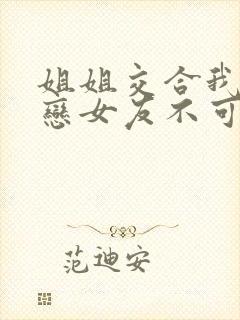 姐姐交合我
戀女友不可
范迪安